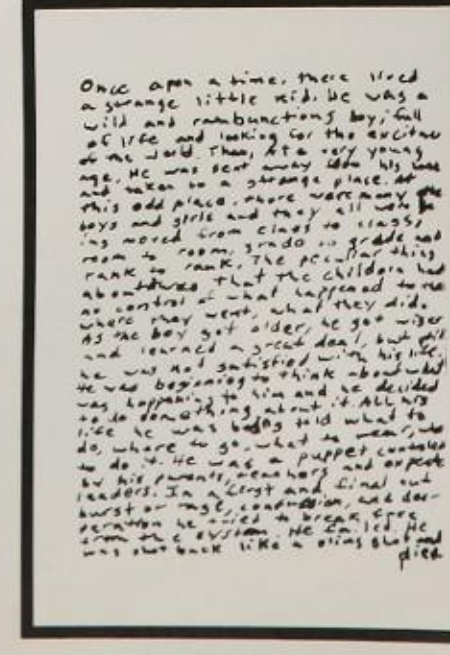 Once apon a time, there lived
a strange little kid. He was a
wild and rambunctious boy, full
of life and looking for the excitmen
of the world. Then, At a very young
age, He was sent away from his
and taken to a strange place. At
this odd place, there were many
boys and girls and they all were
ing moved from class to class,
room to room, grade to grade and
rank to rank. The peculiar thing
about was that the children had
no control of what happened to
where they went, what they did.
As the boy got older, he got wiser
and learned a great deal, but still
he was not satisfied with his life.
He was beginning to think about what
was happening to him and he decided
to do something about it. All his
life he was being told what to
do, where to go, what to wear,
to do it. He was a puppet controled
by his parents, teachers and
leaders. In a first and final out
burst of rage, confussion, and des-
peration he tried to break free
from the system. He failed. He
was shot back like a sling shot and
died